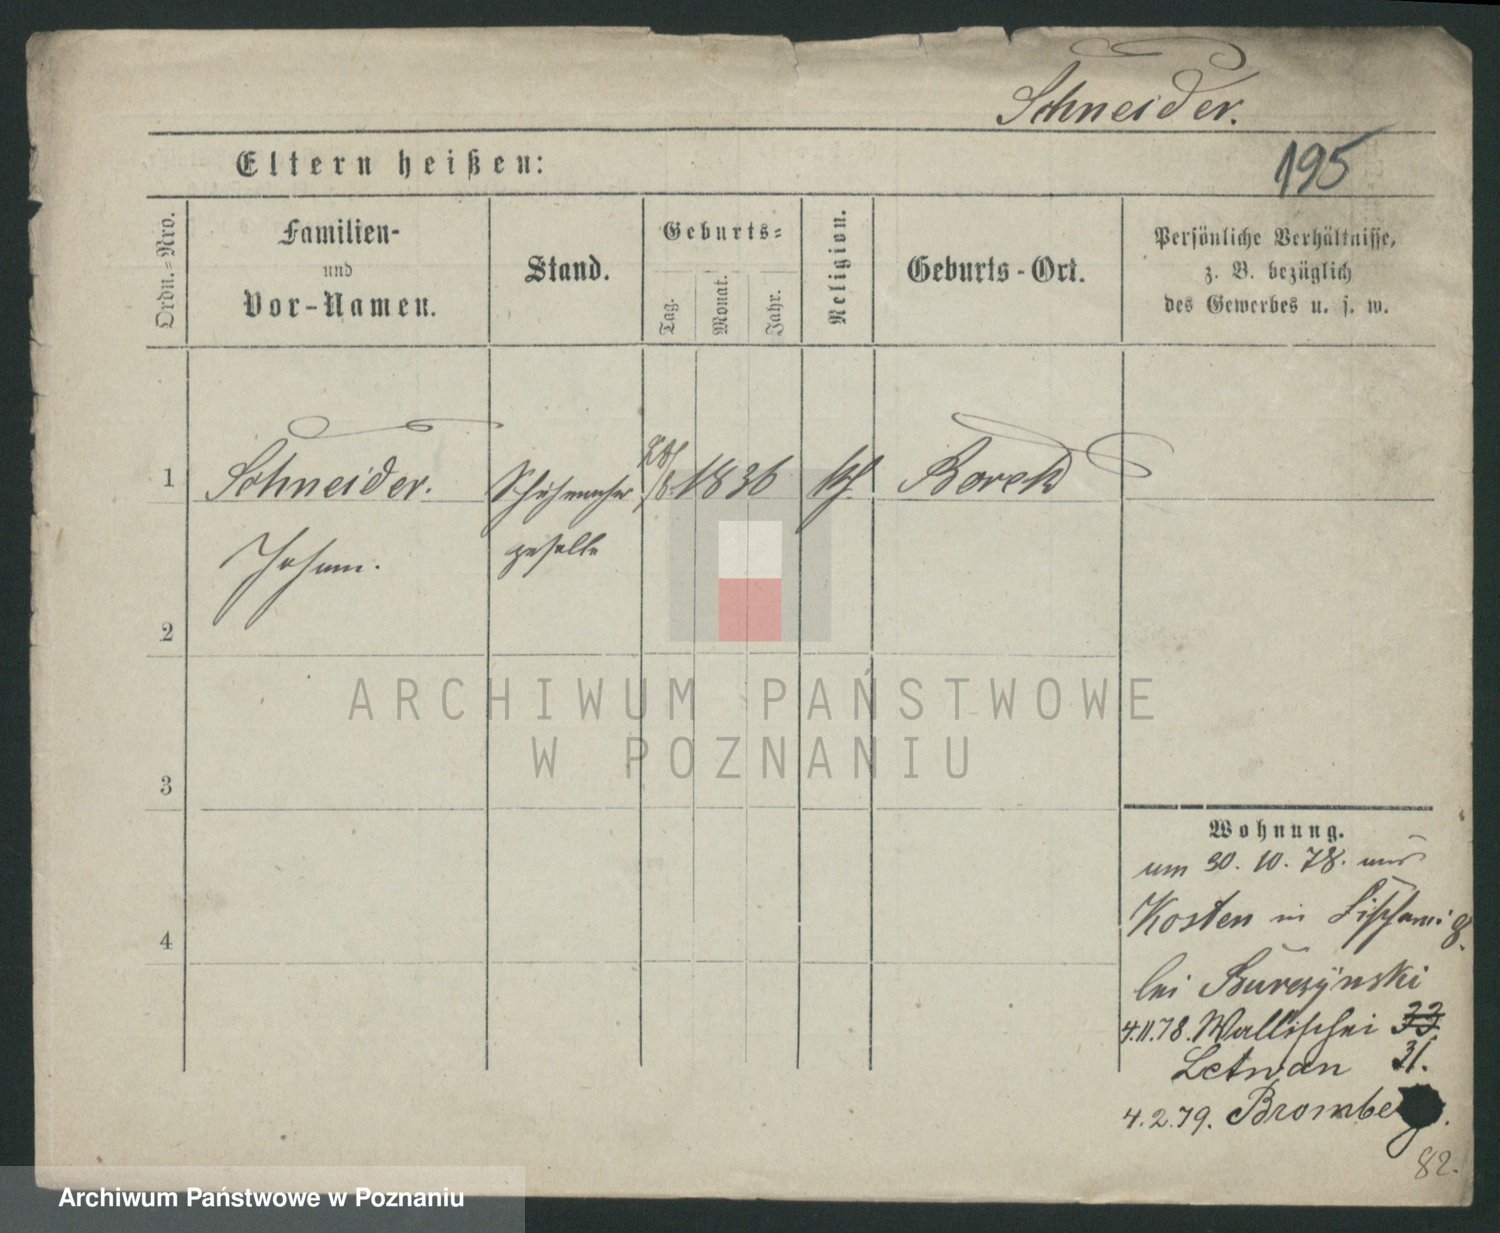 Schneider.
195
Eltern heißen:
Ordn.=Nro.
Familien-
und
Vor-Namen.
Stand.
Geburts=
Tag.
Monat.
Jahr.
Religion.
Geburts-Ort.
Persönliche Verhältnisse,
z. B. bezüglich
des Gewerbes u. s. w.
1 Schneider. Schuhmacher 1836 Borek
Johann. geselle
2
ARCHIWUM PAŃSTWOWE
W POZNANIU
3
4
Wohnung.
um 30. 10. 78. aus
Kosten in
bei
4.11.78. Wallischei 33.
Letwan 31.
4.2.79. Bromberg.
82.
Archiwum Państwowe w Poznaniu